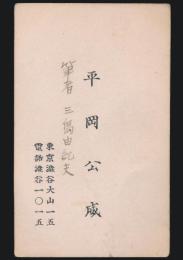 平岡公威
筆者 三島由紀夫
東京澁谷大山一五
電話澁谷一〇一五